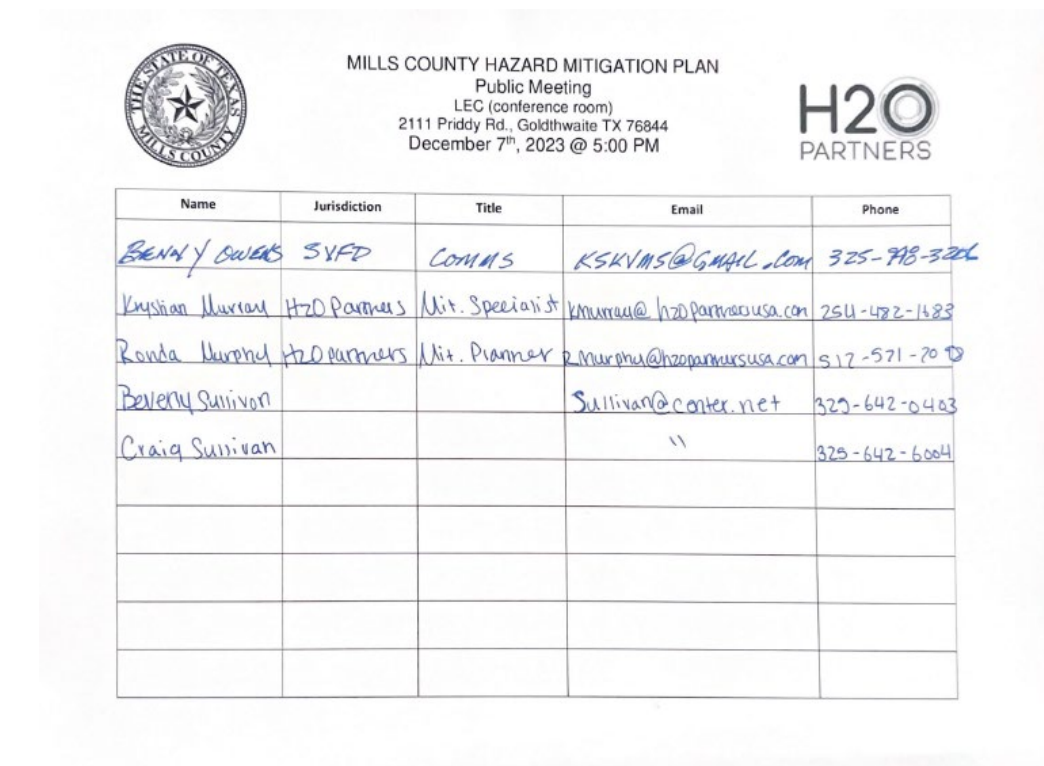 THE STATE OF TEXAS
MILLS COUNTY
MILLS COUNTY HAZARD MITIGATION PLAN
Public Meeting
LEC (conference room)
2111 Priddy Rd., Goldthwaite TX 76844
December 7th, 2023 @ 5:00 PM
H2O
PARTNERS
Name Jurisdiction Title Email Phone
BENNY OWENS SVFD COMMS KSKVMS@GMAIL.COM
Krystian Murray H2O Partners Mit. Specialist kmurray@h2opartnersusa.com 254-482-1683
Ronda Murphy H2O partners Mit. Planner rmurphy@h2opartnersusa.com
Beverly Sullivan Sullivan@centex.net 325-642-0403
Craig Sullivan " 325-642-6004